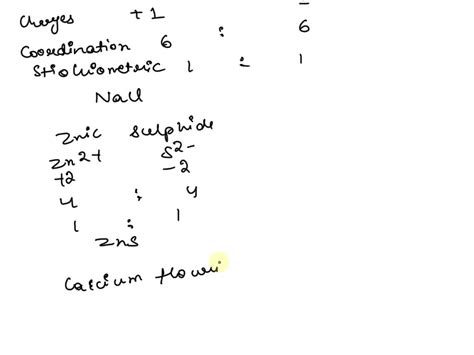 Charges +1 -
Coordination 6 : 6
Stiochiometric 1 : 1
NaCl
Znic Sulphide
Zn2+ S2-
+2 -2
4 : 4
1 : 1
ZnS
Calcium flouri